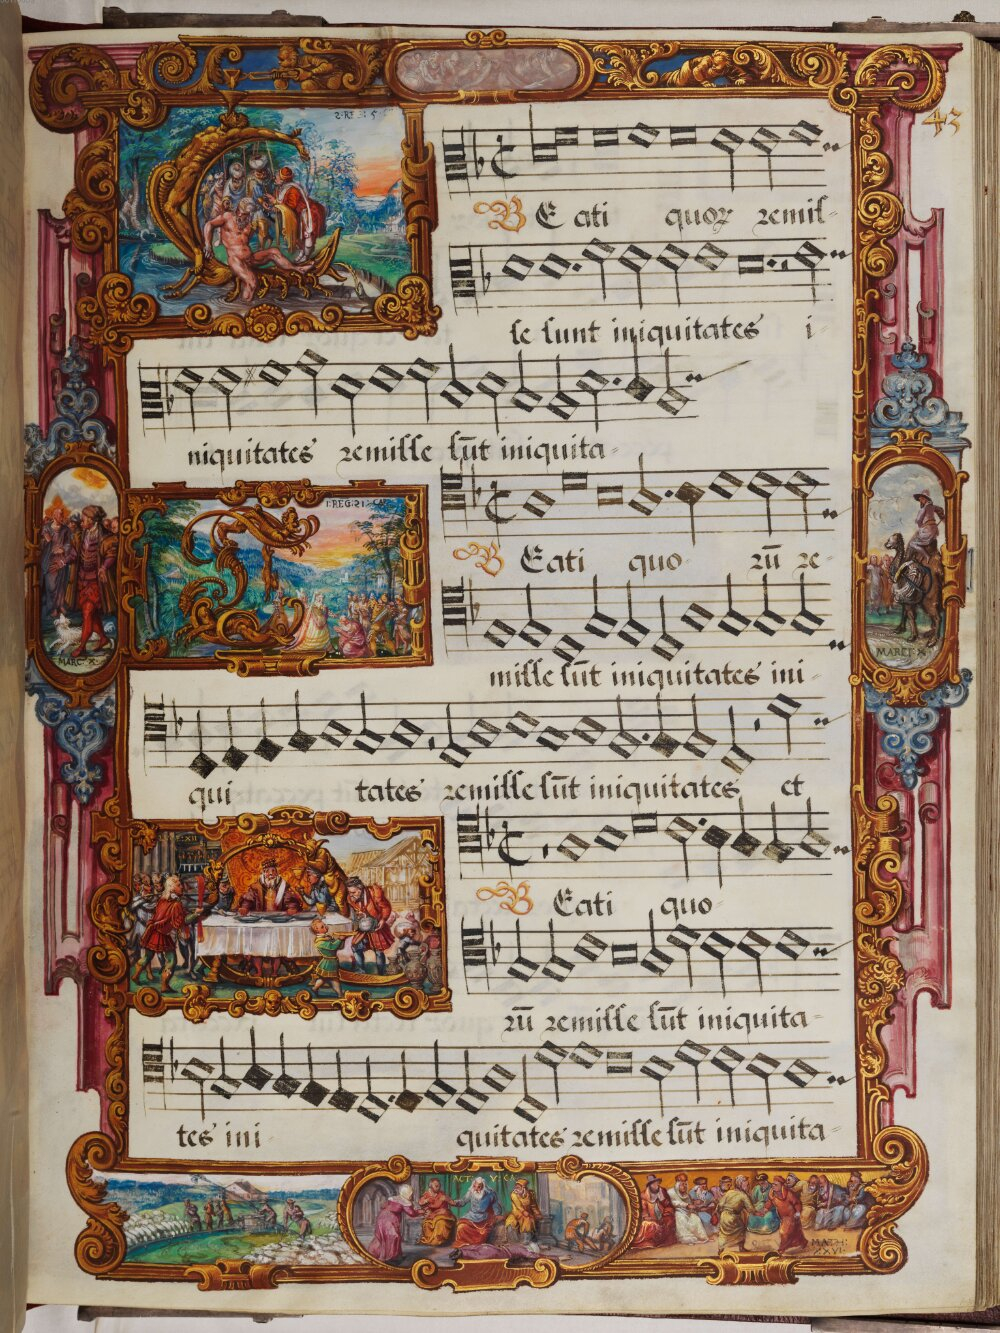 43
BEati quoꝝ remis-
se sunt iniquitates i-
niquitates remisse sūt iniquita-
I·REG:21·CAP
BEati quo rū re-
misse sūt iniquitates ini-
MARC·X·
qui tates remisse sūt iniquitates et
BEati quo
rū remisse sūt iniquita-
tes ini quitates remisse sūt iniquita
ACT V CA
MATH:
XXVI·